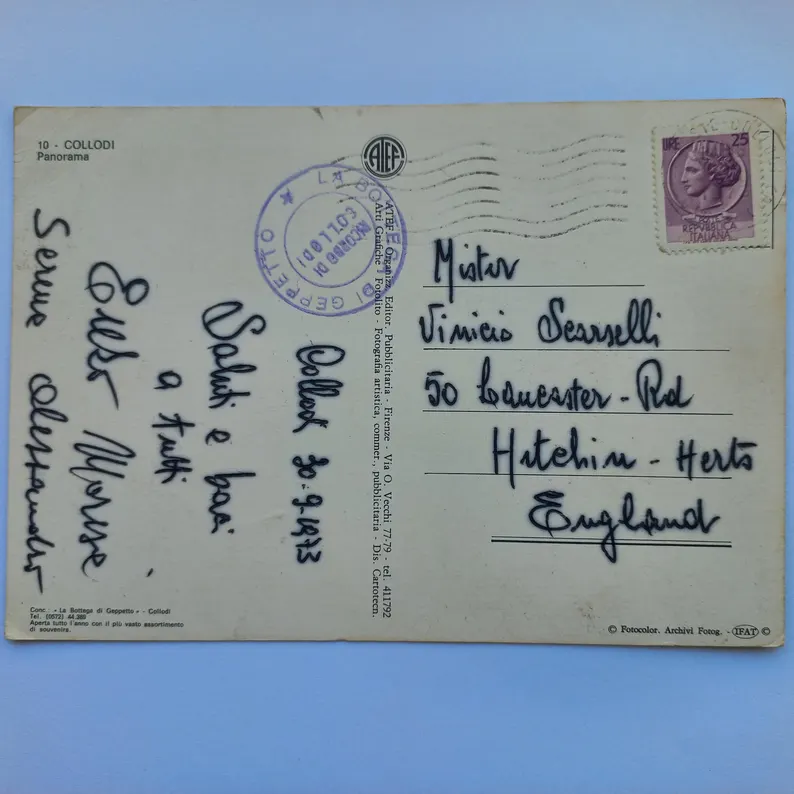 10 - COLLODI
Panorama
Collodi 30-9-1973
Saluti e baci
a tutti
Enzo Morisè
Serena Alessandro
Conc.: « La Bottega di Geppetto » - Collodi
Tel. (0572) 44.389
Aperta tutto l'anno con il più vasto assortimento
di souvenirs.
LA BOTTEGA DI GEPPETTO
RICORDO DI
COLLODI
ATEF
ATEF - Organizz. Editor. Pubblicitaria - Firenze - Via O. Vecchi 77-79 - tel. 411792
Arti Grafiche - Fotolito - Fotografia artistica, commer., pubblicitaria - Dis. Cartotecn.
LIRE 25
POSTE
REPVBBLICA
ITALIANA
Mister
Vinicio Scarselli
50 Lancaster - Rd
Hitchin - Herts
England
© Fotocolor. Archivi Fotog. - IFAT ©